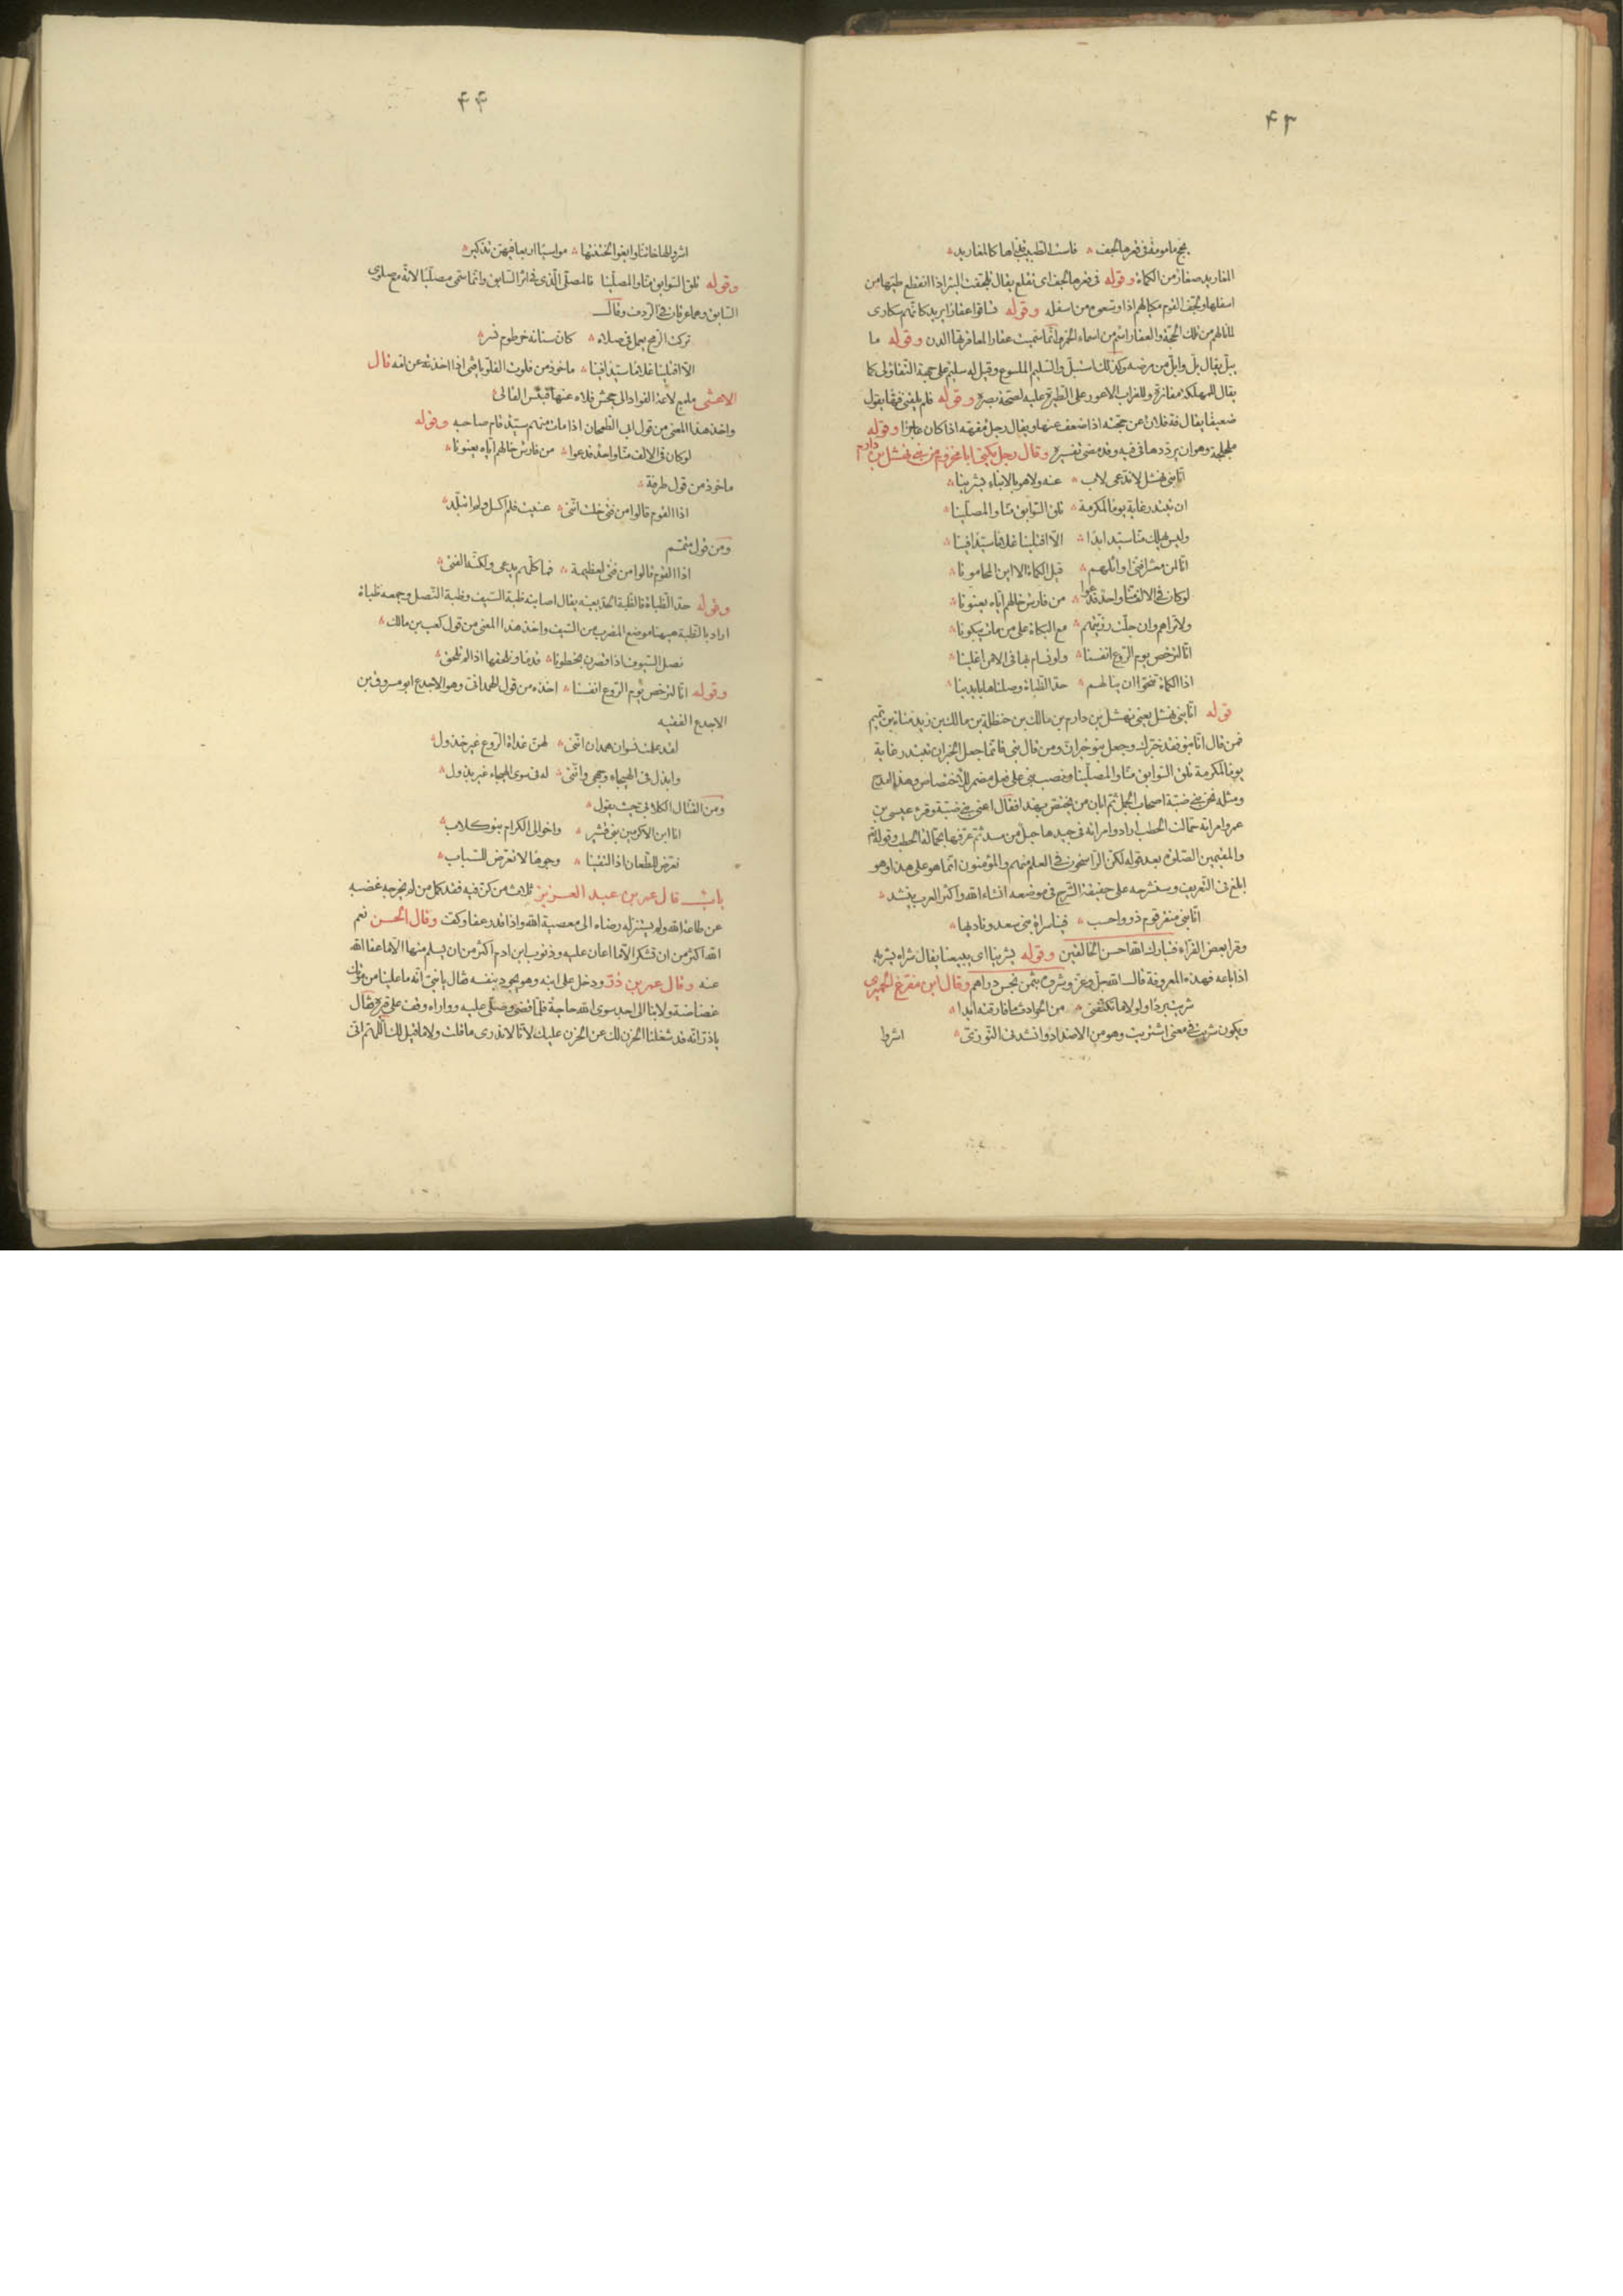 ٤٣
يحج مامومة في قعرها لجف ۞ فاست الطبيب قذاها كالمغاريد
المغاريد صغار من الكماة وقوله في قعرها لجف اى تقلع يقال تلجفت البئر اذا انقلع طيها من
اسفلها وقوله فساقوا عقارا يريد كانهم سكارى
والعقار اسم من اسماء الخمر وانما سميت عقارا لمعاقرتها الدن وقوله ما
يبل يقال بل وابل من مرضه وكذلك استبل والسليم الملسوع وقيل له سليم على جهة التفاؤل كما
يقال للمهلكة مفازة وللغراب الاعور على الطيرة عليه لصحة بصره وقوله فلم يلفنى فها يقول
ضعيفا يقال فه فلان عن حجته اذا ضعف عنها ويقال رجل مفهه اذا كان عاجزا وقوله
ملجلجة وهو ان يرددها في فيه وقد مضى تفسيره وقال رجل يكنى ابا مخزوم من بنى نهشل بن دارم
انا بنى نهشل لا ندعى لاب ۞ عنه ولا هو بالابناء يشرينا
ان تبتدر غاية يوما لمكرمة ۞ تلق السوابق منا والمصلينا
وليس يهلك منا سيد ابدا ۞ الا افتلينا غلاما سيدا فينا
انا لمن معشر افنى اوائلهم ۞ قيل الكماة الا اين المحامونا
لو كان في الالف منا واحد فدعوا ۞ من فارس خالهم اياه يعنونا
ولا تراهم وان جلت رزيتهم ۞ مع البكاة على من مات يبكونا
انا لنرخص يوم الروع انفسنا ۞ ولو نسام بها في الامن اغلينا
اذا الكماة تنحوا ان ينالهم ۞ حد الظباة وصلناها بايدينا
قوله انا بنى نهشل يعنى نهشل بن دارم بن مالك بن حنظلة بن مالك بن زيد مناة بن تميم
فمن قال انا بنو فقد خبرك وجعل بنو خبر ان ومن قال بنى فانما جعل الخبر ان تبتدر غاية
يوما لمكرمة تلق السوابق منا والمصلينا ونصب بنى على فعل مضمر للاختصاص وهذا امدح
ومثله نحن بنى ضبة اصحاب الجمل ثم ابان من يختص بهذا فقال اعنى بنى ضبة وقرء عيسى بن
عمر وامراته حمالة الحطب اراد وامراته في جيدها حبل من مسد ثم عرفها بحمالة الحطب وقوله
والمقيمين الصلوة بعد قوله لكن الراسخون في العلم منهم والمؤمنون انما هو على هذا وهو
ابلغ في التعريف وسنشرحه على حقيقة الشرح في موضعه انشاء الله واكثر العرب ينشد ۞
انا بنى منقر قوم ذوو احسب ۞ فينا سراة بنى سعد وناديها ۞
وقرا بعض القراء فتبارك الله احسن الخالقين وقوله يشرينا اى يبيعنا يقال شراه يشريه
اذا باعه فهذه المعروفة قال الله جل وعز وشروه بثمن بخس دراهم وقال ابن مفرغ الحميرى
شريت بردا ولولا ما تكنفنى ۞ من الحوادث ما فارقته ابدا ۞
ويكون شريت في معنى اشتريت وهو من الاضداد وانشدنى التوزى ۞
اشروا
٤٤
اشروا لها خاتنا وابغوا لختنتها ۞ مواسيا اربعا فيهن تذكير ۞
وقوله تلق السوابق منا والمصلينا فالمصلى الذى في اثر السابق وانما سمى مصليا لانه مع صلوى
السابق وهما عرقان في الردف وقال
تركت الرمح يعمل في صلاه ۞ كان سنانه خرطوم نسر ۞
الا افتلينا غلاما سيدا فينا ۞ ماخوذ من فلوت الفلو يا فتى اذا اخذته عن امه قال
الاعشى ملمع لاعة الفواد الى جحش فلاه عنها فبئس الفالى
واخذ هذا المعنى من قول ابى الطمحان اذا مات منهم سيد قام صاحبه وقوله
لو كان في الالف منا واحد فدعوا ۞ من فارس خالهم اياه يعنونا ۞
ماخوذ من قول طرفة ۞
اذا القوم قالوا من فتى خلت اننى ۞ عنيت فلم اكسل ولم اتبلد ۞
ومن قول متمم
اذا القوم قالوا من فتى لعظيمة ۞ فما كلهم يدعى ولكنه الفتى ۞
وقوله حد الظباة فالظبة الحد بعينه يقال اصابته ظبة السيف وظبة النصل وجمعه ظباة
اراد بالظبة هيهنا موضع المضرب من السيف واخذ هذا المعنى من قول كعب بن مالك ۞
نصل السيوف اذا قصرن بخطونا ۞ قدما ونلحقها اذا لم تلحق ۞
وقوله انا لنرخص يوم الروع انفسنا ۞ اخذه من قول الهمدانى وهو الاجدع ابو مسروق بن
الاجدع الفقيه
لقد علمت نسوان همدان اننى ۞ لهن غداة الروع غير خذول ۞
وابذل في الهيجاء وجهى واننى ۞ له في سوى الهيجاء غير بذول ۞
ومن القتال الكلابى حيث يقول ۞
انا ابن الاكرمين بنى قشير ۞ واخوالى الكرام بنو كلاب ۞
نعرض للطعان اذا التقينا ۞ وجوها لا نعرض للسباب ۞
باب قال عمر بن عبد العزيز ثلاث من كن فيه فقد كمل من لم يخرجه غضبه
عن طاعة الله ولم يستنزله رضاه الى معصية الله واذا قدر عفا وكف وقال الحسن نعم
الله اكثر من ان تشكر الا ما اعان عليه وذنوب ابن ادم اكثر من ان يسلم منها الا ما عفا الله
عنه وقال عمر بن ذر ودخل على ابنه وهو يجود بنفسه فقال يا بنى انه ما علينا من موتك
غضاضة ولا بنا الى احد سوى الله حاجة فلما قضى وصلى عليه وواراه وقف على قبره فقال
يا ذر انه قد شغلنا الحزن لك عن الحزن عليك لانا لا ندرى ما قلت ولا ما قيل لك اللهم انى